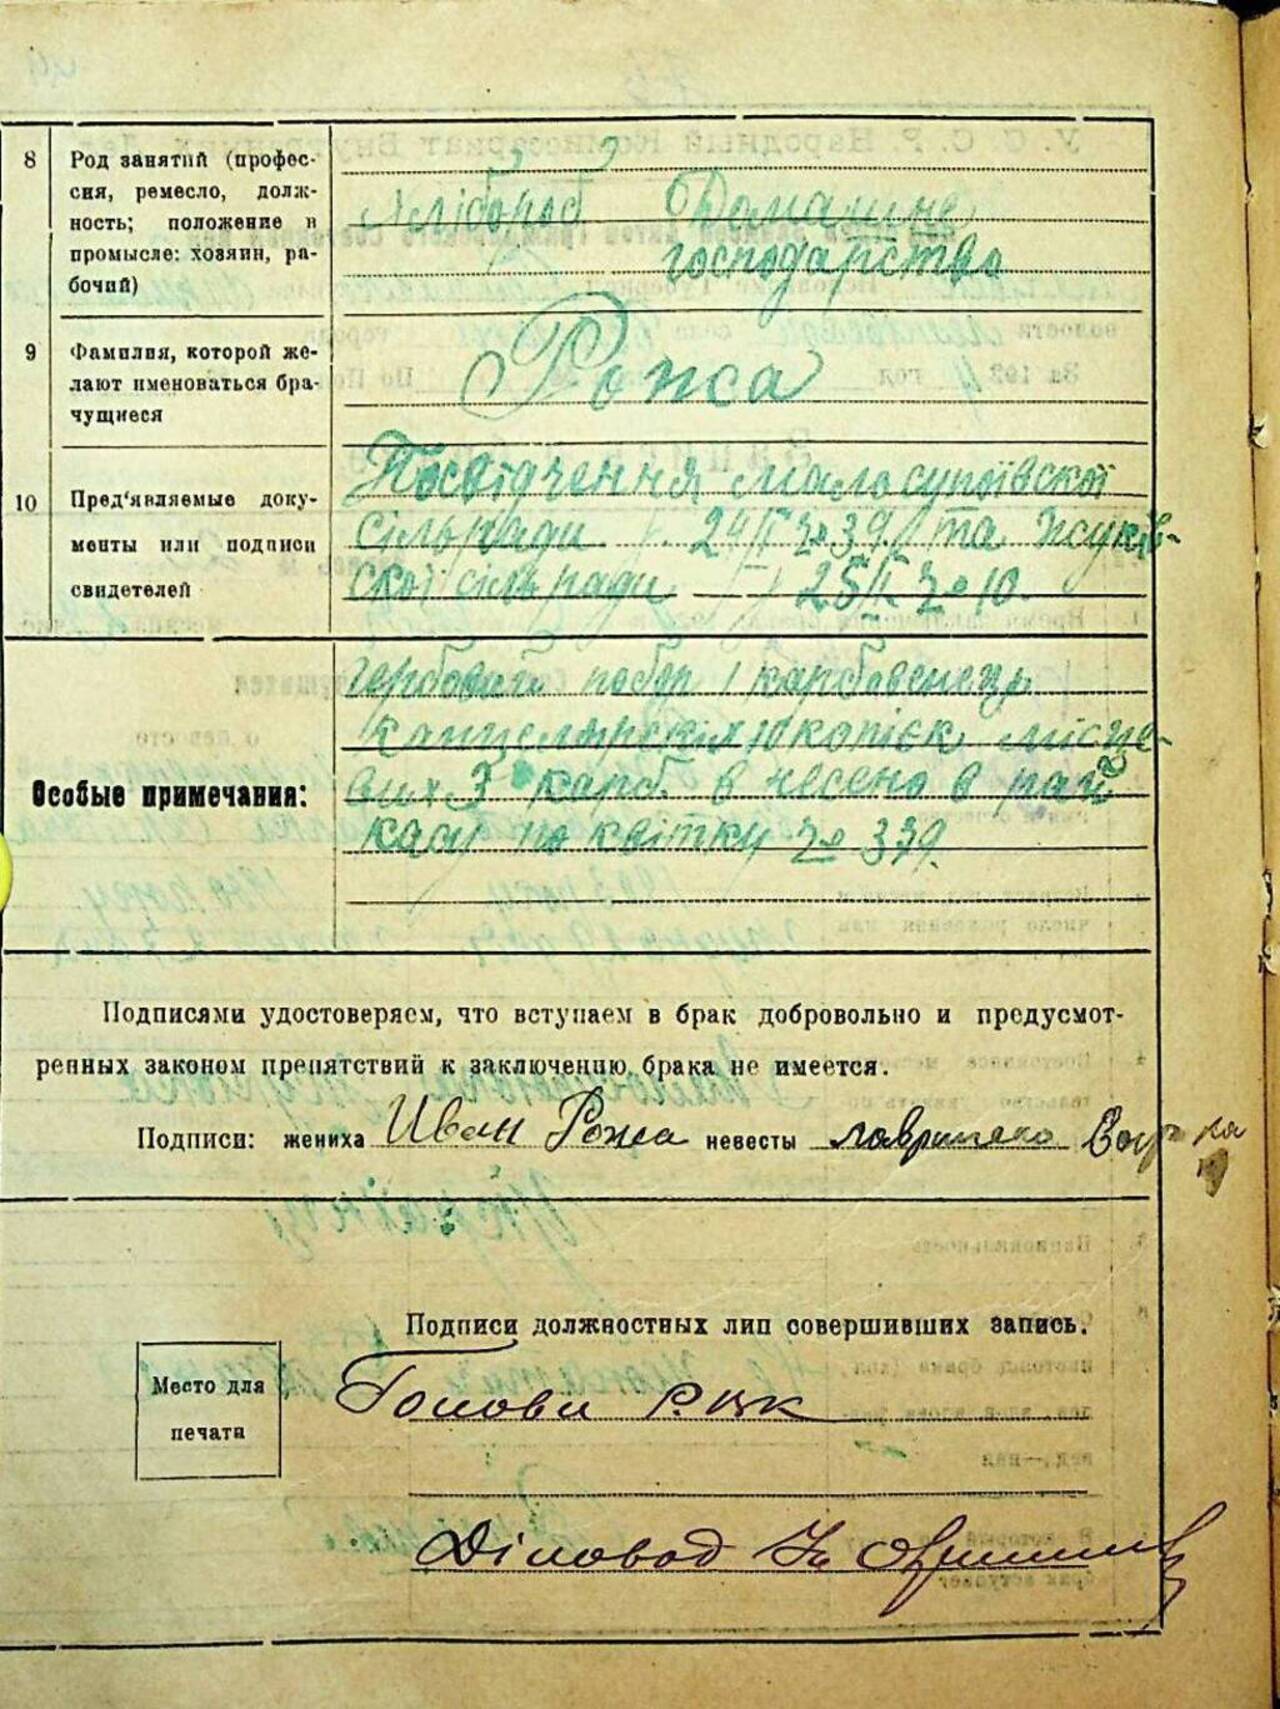 8 Род занятий (профес-
сия, ремесло, долж-
ность; положение в
промысле: хозяин, ра-
бочий)
Хлібороб Домашнє
господарство
9 Фамилия, которой же-
лают именоваться бра-
чущиеся
Рожса
10 Пред'являемые доку-
менты или подписи
свидетелей
Посвідчення малосупоївскої
сільради 24/І № 39 та Жуків-
ської сільради 25/І № 10.
Особые примечания:
Гербовий побор 1 карбованець
канцелярских 10 копієк місце-
вих 3 карб. внесено в рай
касу по квітку № 339.
Подписями удостоверяем, что вступаем в брак добровольно и предусмот-
ренных законом препятствий к заключению брака не имеется.
Подписи: жениха Иван Рожса невесты
Подписи должностных лиц совершивших запись.
Место для
печати
Голова
Діловод